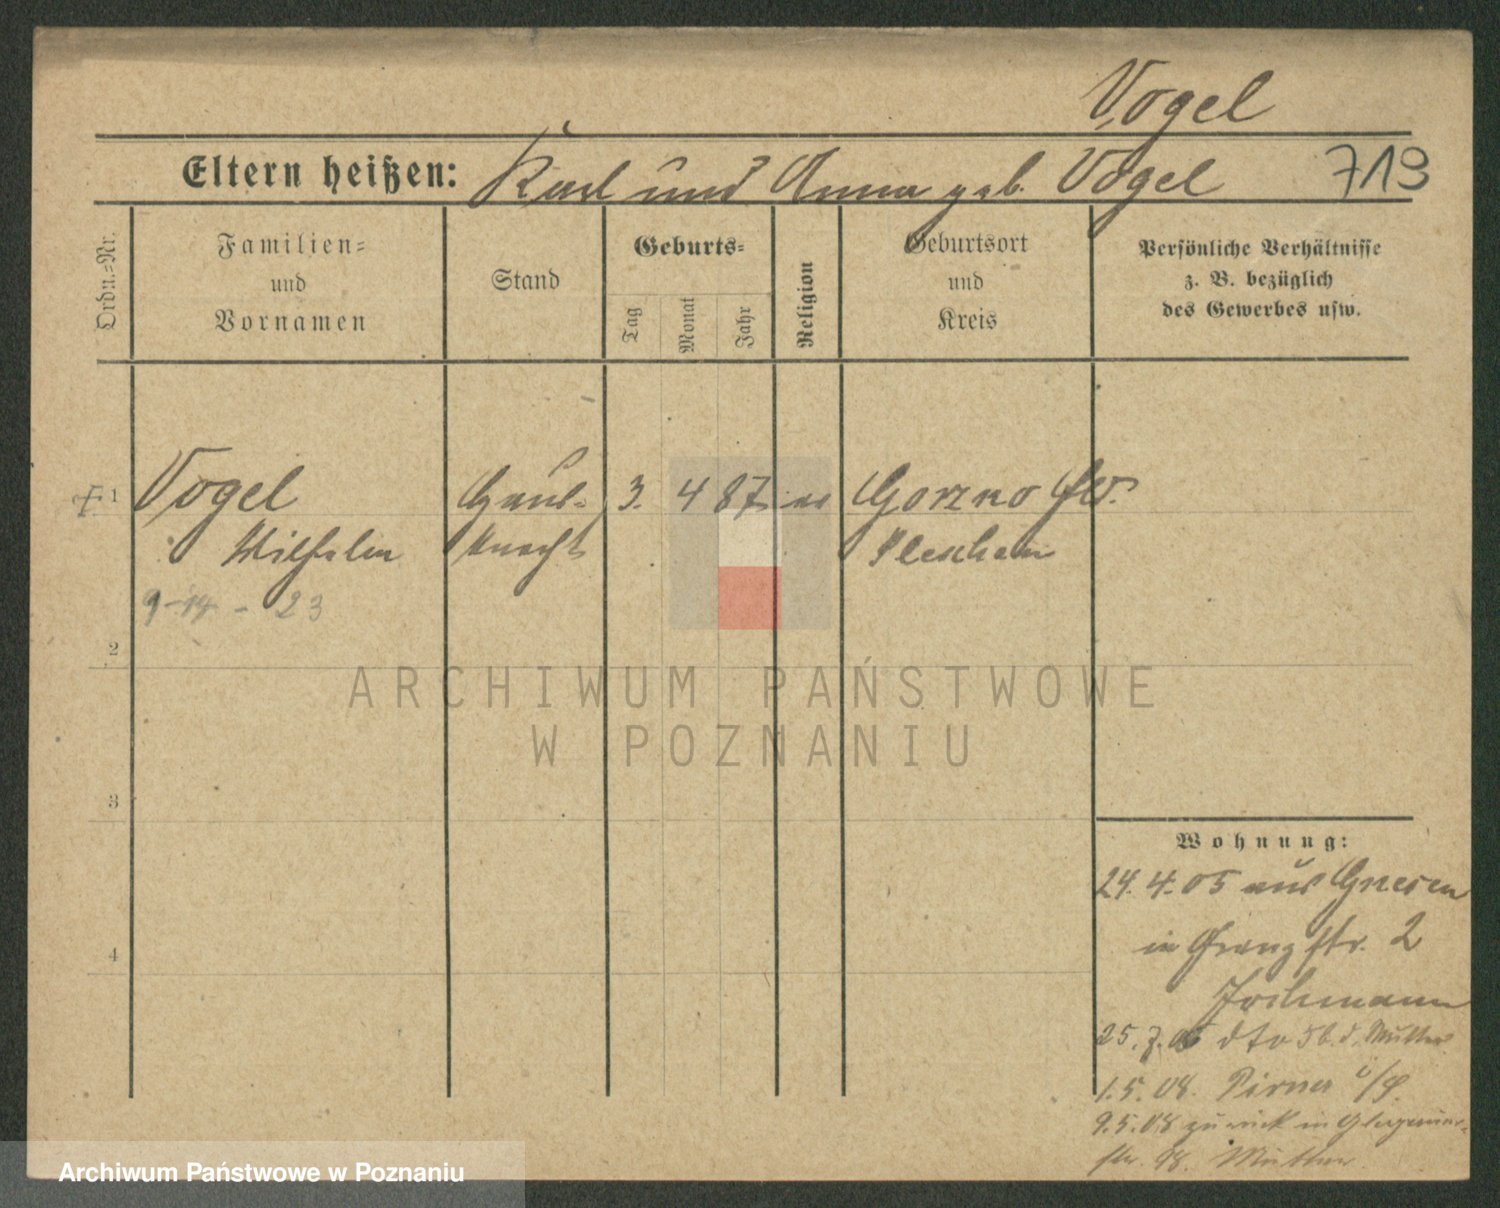 Vogel
Eltern heißen: Karl und Anna geb. Vogel 719
Ordn.-Nr.
Familien-
und
Vornamen
Stand
Geburts-
Tag
Monat
Jahr
Religion
Geburtsort
und
Kreis
Persönliche Verhältnisse
z. B. bezüglich
des Gewerbes usw.
1 Vogel Haus- 3. 4 87 Gorzno
Wilhelm knecht Pleschen
23
2
ARCHIWUM PAŃSTWOWE
W POZNANIU
3
Wohnung:
24. 4. 05 aus Gnesen
in str. 2
4
Jochmann
25. 7. 05 dto 5 b. d. Mutter
1. 5. 08.
9. 5. 08 zurück in
str. Mutter
Archiwum Państwowe w Poznaniu